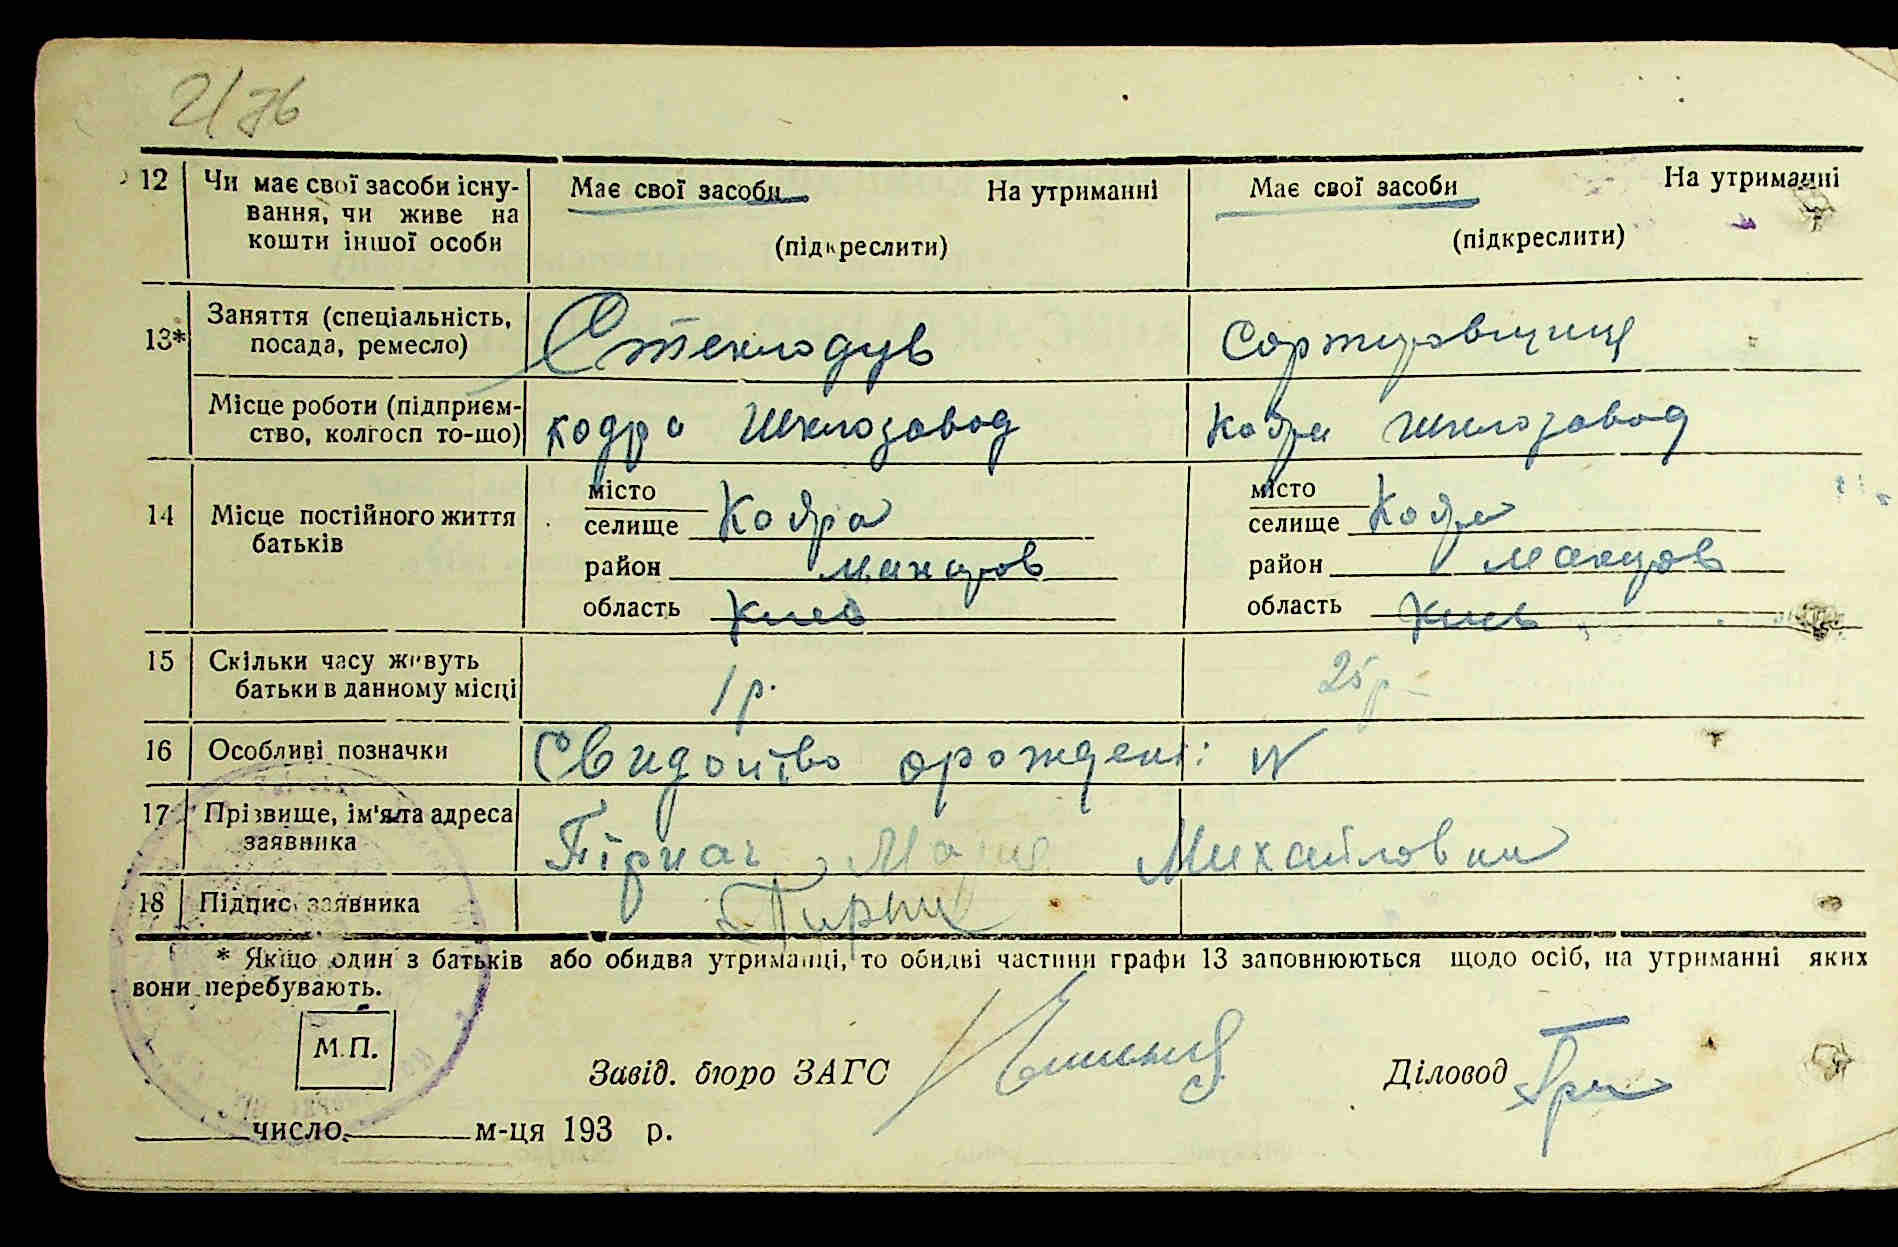 2/76
12 Чи має свої засоби існу- Має свої засоби На утриманні Має свої засоби На утриманні
вання, чи живе на
кошти іншої особи (підкреслити) (підкреслити)
13* Заняття (спеціальність, Стеклодув Сортировщиця
посада, ремесло)
Місце роботи (підприєм- кодра Шклозавод Кодра Шклозавод
ство, колгосп то-що)
місто місто
14 Місце постійного життя селище Кодра селище Кодра
батьків район Макаров район Макаров
область Киев область Киев
15 Скільки часу живуть 1 р. 25 р
батьки в данному місці
16 Особливі позначки Свидоцтво орождені: N
17 Прізвище, ім'я та адреса Пірнач Михайловна
заявника
18 Підпис заявника
* Якщо один з батьків або обидва утриманці, то обидві частини графи 13 заповнюються щодо осіб, на утриманні яких
вони перебувають.
М.П.
Завід. бюро ЗАГС Діловод
число м-ця 193 р.